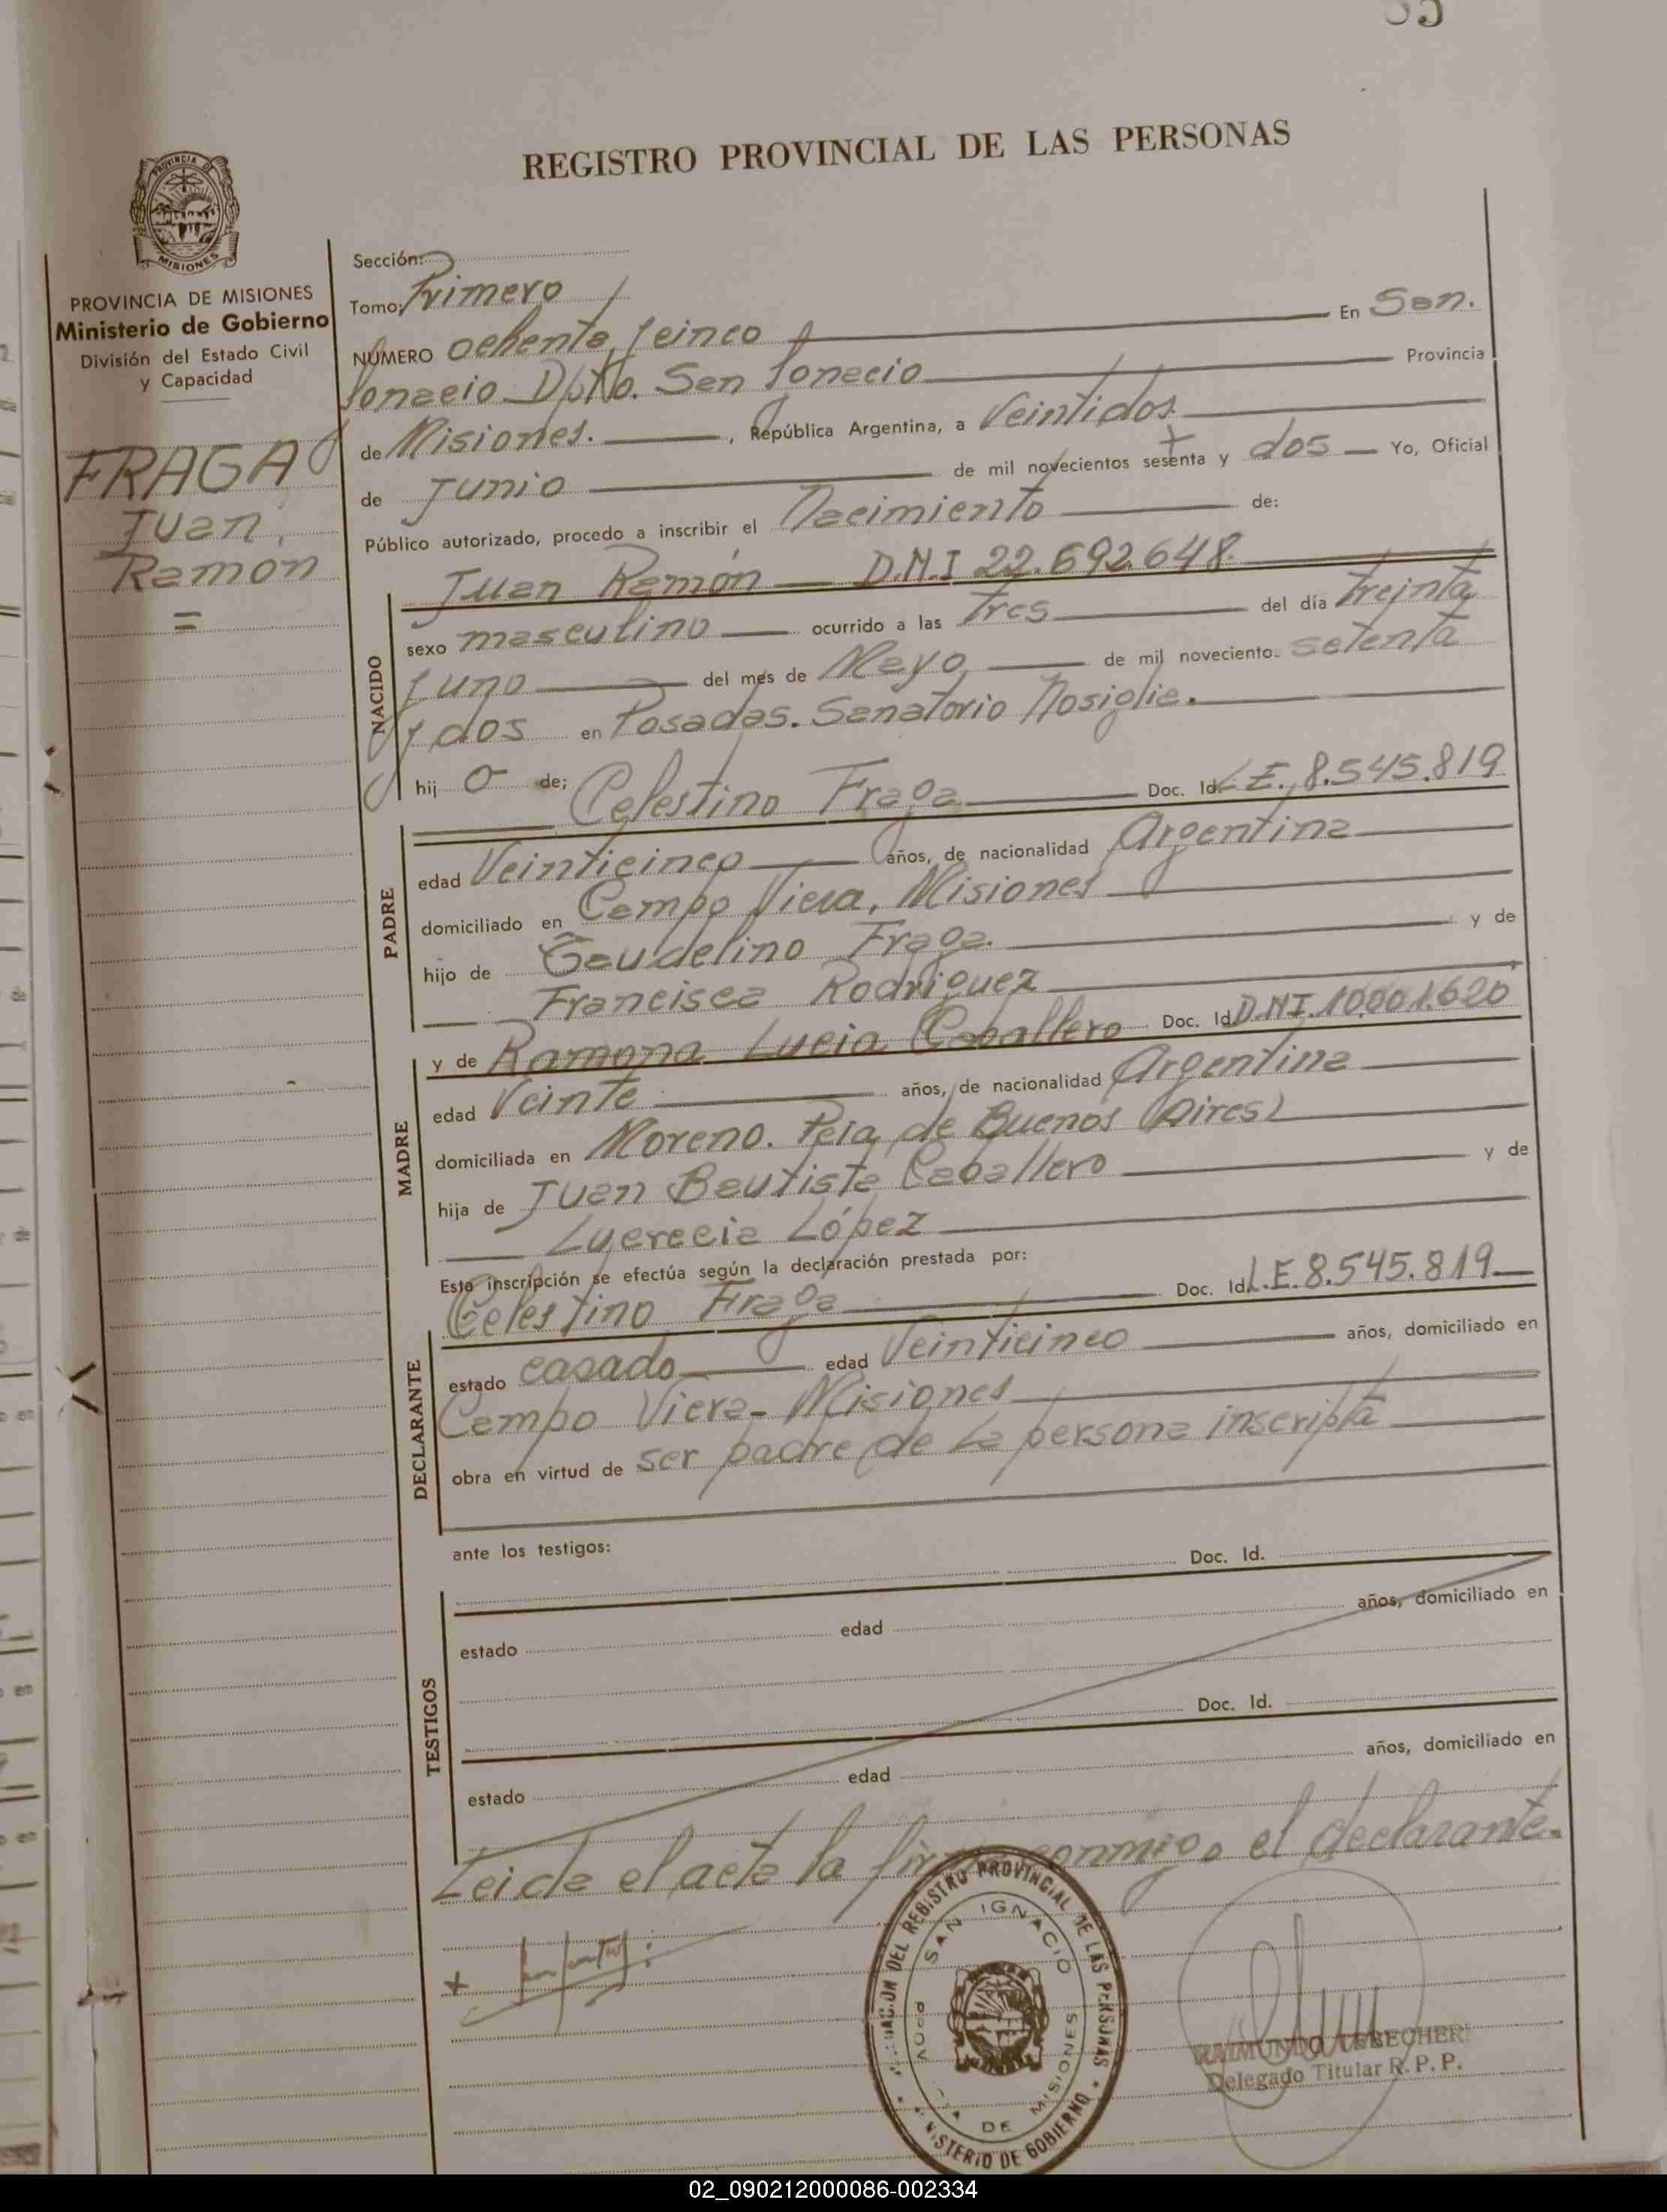 85
REGISTRO PROVINCIAL DE LAS PERSONAS
PROVINCIA DE MISIONES
MISIONES
PROVINCIA DE MISIONES
Ministerio de Gobierno
División del Estado Civil
y Capacidad
FRAGA
Juan
Ramón
=
Sección:
Tomo: Primero
NÚMERO ochenta y cinco En San
Ignacio Dpto. San Ignacio Provincia
de Misiones. , República Argentina, a Veintidos
de Junio de mil novecientos setenta y dos Yo, Oficial
Público autorizado, procedo a inscribir el Nacimiento de:
NACIDO
Juan Ramón D.N.I 22.692.648
sexo masculino ocurrido a las tres del día treinta
y uno del més de Mayo de mil noveciento. setenta
y dos en Posadas. Sanatorio Nosiglia.
hij o de; Celestino Fraga Doc. Id L.E. 8.545.819
PADRE
edad Veinticinco años, de nacionalidad Argentina
domiciliado en Campo Viera, Misiones
hijo de Gaudelino Fraga. y de
Francisca Rodríguez
y de Ramona Lucia Caballero Doc. Id D.N.I. 10.001.620
MADRE
edad Veinte años, de nacionalidad Argentina
domiciliada en Moreno. Pcia de Buenos Aires)
hija de Juan Bautista Caballero y de
Lucrecia López
Esta inscripción se efectúa según la declaración prestada por:
Celestino Fraga Doc. Id L.E. 8.545.819
DECLARANTE
estado casado edad Veinticinco años, domiciliado en
Campo Viera - Misiones
obra en virtud de ser padre de la persona inscripta
ante los testigos:
Doc. Id.
TESTIGOS
estado edad años, domiciliado en
Doc. Id.
estado edad años, domiciliado en
Leida el acta la firma conmigo el declarante.
DEL REGISTRO PROVINCIAL DE LAS PERSONAS
SAN IGNACIO
DE MISIONES
MINISTERIO DE GOBIERNO
RAIMUNDO
Delegado Titular R.P.P.
02_090212000086-002334